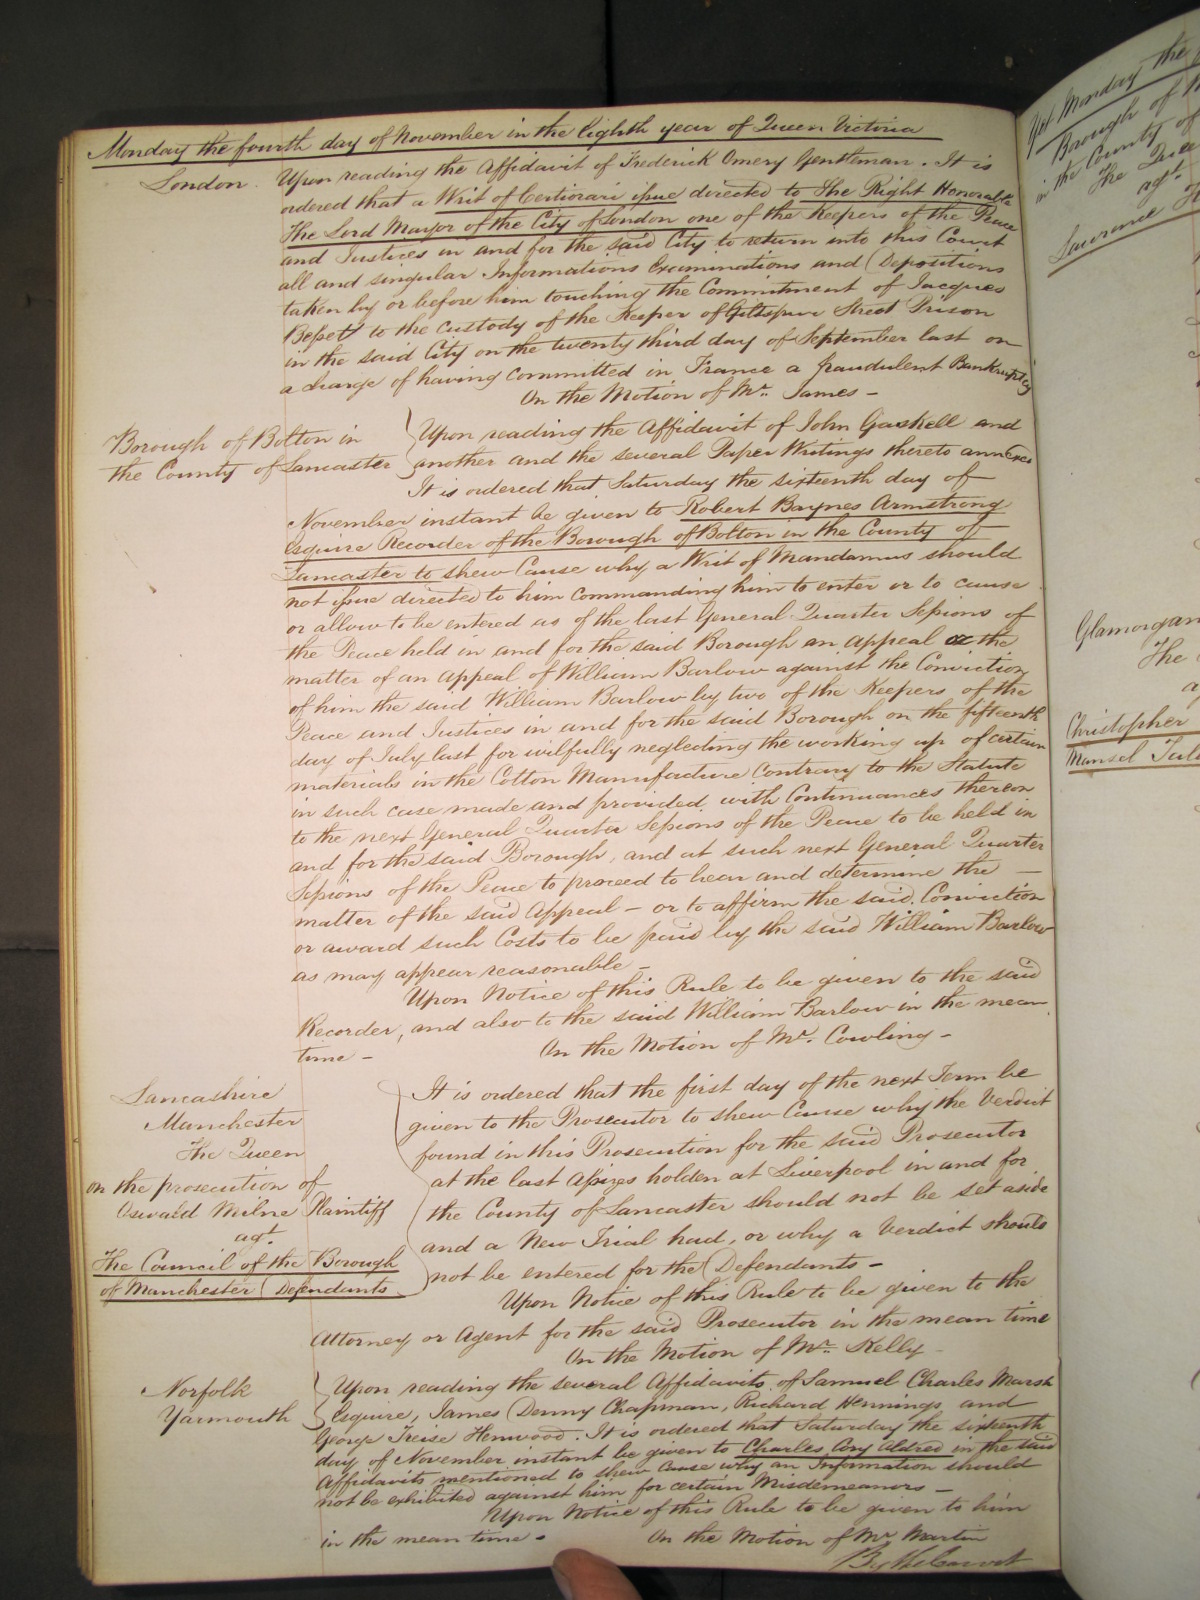 Monday the fourth day of November in the Eighth year of Queen Victoria
London. Upon reading the Affidavit of Frederick Omery Gentleman. It is
ordered that a Writ of Certiorari issue directed to The Right Honorable
The Lord Mayor of the City of London one of the Keepers of the Peace
and Justices in and for the said City to return into this Court
all and singular Informations Examinations and Depositions
taken by or before him touching the Commitment of Jacques
Besset to the custody of the Keeper of Giltspur Street Prison
in the said City on the twenty third day of September last on
a charge of having committed in France a fraudulent Bankruptcy
On the Motion of Mr. James -
Borough of Bolton in
the County of Lancaster
Upon reading the Affidavit of John Gaskell and
another and the several Paper Writings thereto annexed
It is ordered that Saturday the sixteenth day of
November instant be given to Robert Baynes Armstrong
Esquire Recorder of the Borough of Bolton in the County of
Lancaster to shew Cause why a Writ of Mandamus should
not issue directed to him commanding him to enter or to cause
or allow to be entered as of the last General Quarter Sessions of
the Peace held in and for the said Borough an appeal or the
matter of an appeal of William Barlow against the Conviction
of him the said William Barlow by two of the Keepers of the
Peace and Justices in and for the said Borough on the fifteenth
day of July last for wilfully neglecting the working up of certain
materials in the Cotton Manufacture Contrary to the Statute
in such case made and provided with Continuances thereon
to the next General Quarter Sessions of the Peace to be held in
and for the said Borough, and at such next General Quarter
Sessions of the Peace to proceed to hear and determine the -
matter of the said Appeal - or to affirm the said Conviction
or award such Costs to be paid by the said William Barlow
as may appear reasonable -
Upon Notice of this Rule to be given to the said
Recorder, and also to the said William Barlow in the mean
time - On the Motion of Mr. Cowling -
Lancashire
Manchester
The Queen
on the prosecution of
Oswald Milne Plaintiff
agt.
The Council of the Borough
of Manchester Defendants
It is ordered that the first day of the next Term be
given to the Prosecutor to shew Cause why the Verdict
found in this Prosecution for the said Prosecutor
at the last Assizes holden at Liverpool in and for
the County of Lancaster should not be set aside
and a New Trial had, or why a Verdict should
not be entered for the Defendants -
Upon Notice of this Rule to be given to the
Attorney or Agent for the said Prosecutor in the mean time
On the Motion of Mr. Kelly -
Norfolk
Yarmouth
Upon reading the several Affidavits of Samuel Charles Marsh
Esquire, James Denny Chapman, Richard Hennings and
George Treise Henwood. It is ordered that Saturday the sixteenth
day of November instant be given to Charles Cory Aldred in the said
Affidavits mentioned to shew Cause why an Information should
not be exhibited against him for certain Misdemeanors -
Upon Notice of this Rule to be given to him
in the mean time - On the Motion of Mr Martin
By the Court
Yet Monday the
Borough of
in the County of
The
agt.
Lawrence
Glamorgan
The
Christopher
Mansel